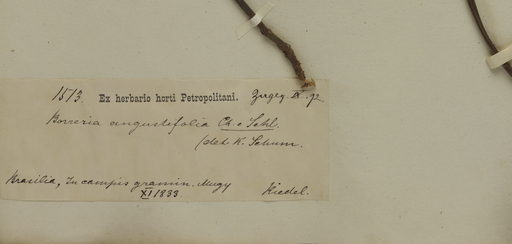 1513. Ex herbario horti Petropolitani.
Borreria angustifolia Ch. e Schl.
(det K. Schum.
Brasilia, In campis gramin. Mugy
XI 1833 Riedel.